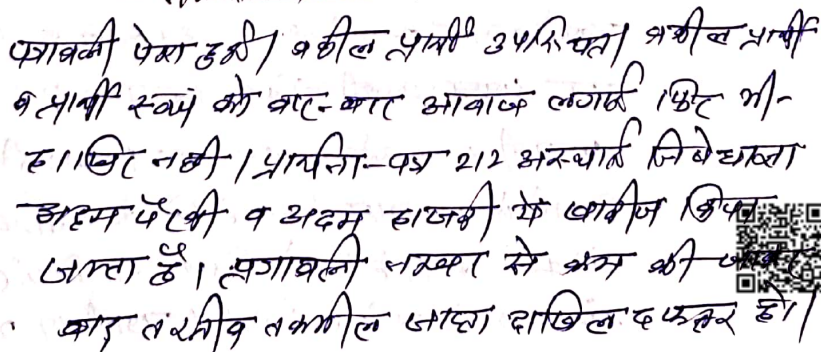 पत्रावली पेश हुई। वकील प्रार्थी उपस्थित। वकील प्रार्थी
व प्रार्थी स्वयं को बार-बार आवाजे लगाई फिर भी-
हाजिर नही। प्रार्थना-पत्र 212 अस्थाई निषेधाज्ञा
अदम पैरवी व अदम हाजरी मे खारीज किया
जाता है। पत्रावली नम्बर से कम की
बाद तरतीब तकमील जाब्ता दाखिल दफ्तर हो।